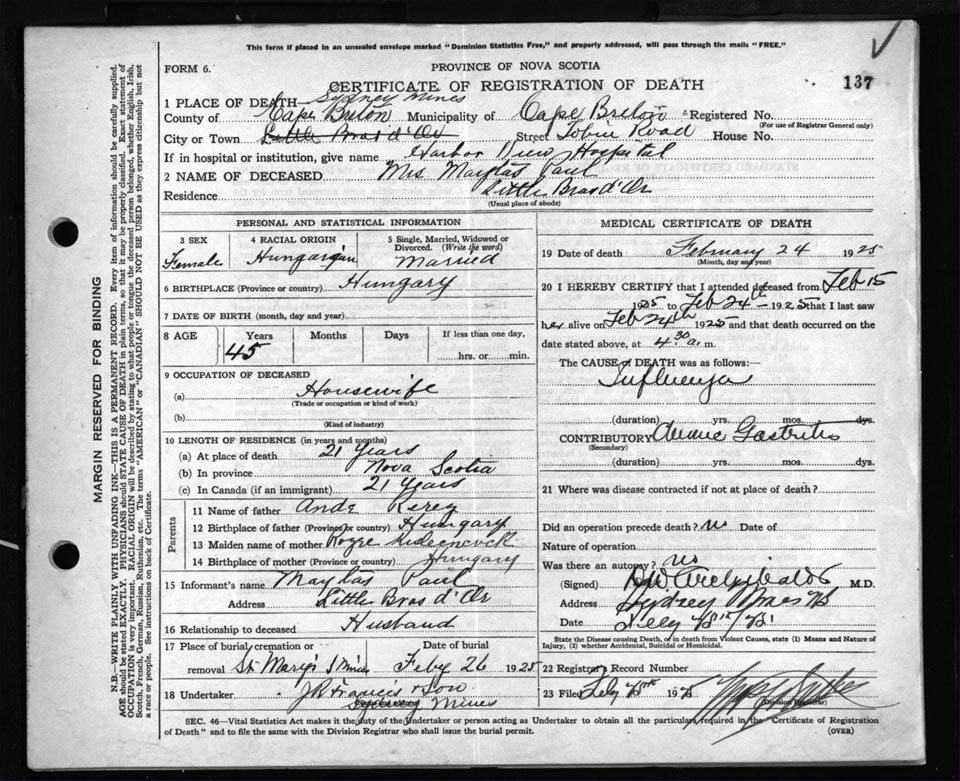 This form if placed in an unsealed envelope marked "Dominion Statistics Free," and properly addressed, will pass through the mails "FREE."
FORM 6.
PROVINCE OF NOVA SCOTIA
CERTIFICATE OF REGISTRATION OF DEATH
137
1 PLACE OF DEATH Sydney Mines
County of Cape Breton Municipality of Cape Breton Registered No.
(For use of Registrar General only)
City or Town Little Bras d'Or Street Tobin Road House No.
If in hospital or institution, give name Harbor View Hospital
2 NAME OF DECEASED Mrs Maylas Paul
Residence Little Bras d'Or
(Usual place of abode)
PERSONAL AND STATISTICAL INFORMATION
3 SEX Female
4 RACIAL ORIGIN Hungarian
5 Single, Married, Widowed or Divorced. (Write the word) Married
6 BIRTHPLACE (Province or country) Hungary
7 DATE OF BIRTH (month, day and year)
8 AGE Years Months Days If less than one day,
45 hrs. or min.
9 OCCUPATION OF DECEASED
(a) Housewife
(Trade or occupation or kind of work)
(b)
(Kind of industry)
10 LENGTH OF RESIDENCE (in years and months)
(a) At place of death 21 Years
(b) In province Nova Scotia
(c) In Canada (if an immigrant) 21 Years
Parents
11 Name of father Andr
12 Birthplace of father (Province or country) Hungary
13 Maiden name of mother
14 Birthplace of mother (Province or country) Hungary
15 Informant's name Maylas Paul
Address Little Bras d'Or
16 Relationship to deceased Husband
17 Place of burial, cremation or Date of burial
removal St Mary's S Mines Feby 26 1925
18 Undertaker J R Francis & Son
Sydney Mines
MEDICAL CERTIFICATE OF DEATH
19 Date of death February 24 1925
(Month, day and year)
20 I HEREBY CERTIFY that I attended deceased from Feb 15
1925 to Feb 24th 1925 that I last saw
her alive on Feb 24th 1925 and that death occurred on
date stated above, at 4 30 a. m.
The CAUSE OF DEATH was as follows:
Influenza
(duration) yrs. mos. dys.
CONTRIBUTORY Gastritis
(Secondary)
(duration) yrs. mos. dys.
21 Where was disease contracted if not at place of death?
Did an operation precede death? No Date of
Nature of operation
Was there an autopsy? No
(Signed) Archibald M.D.
Address Sydney Mines NS
Date
State the Disease causing Death, or in death from Violent Causes, state (1) Means and Nature of
Injury, (2) whether Accidental, Suicidal or Homicidal.
22 Registrars Record Number
23 Filed 192
(Division Registrar)
SEC. 46—Vital Statistics Act makes it the duty of the Undertaker or person acting as Undertaker to obtain all the particulars required in the "Certificate of Registration
of Death" and to file the same with the Division Registrar who shall issue the burial permit.
(OVER)
MARGIN RESERVED FOR BINDING
N.B.—WRITE PLAINLY WITH UNFADING INK—THIS IS A PERMANENT RECORD. Every item of information should be carefully supplied.
AGE should be stated EXACTLY. PHYSICIANS should STATE CAUSE OF DEATH in plain terms, so that it may be properly classified. Exact statement of
OCCUPATION is very important. RACIAL ORIGIN will be described by stating to what people or tongue the deceased person belonged, whether English, Irish,
Scotch, French, German, Russian, Ruthenian, etc. The terms "AMERICAN" or "CANADIAN" SHOULD NOT BE USED as they express citizenship but not
a race or people. See instructions on back of Certificate.